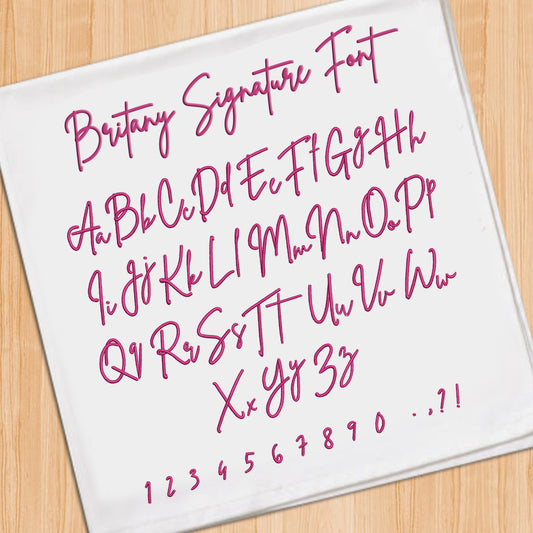 Britany Signature Font
Aa Bb Cc Dd Ee Ff Gg Hh
Ii Jj Kk Ll Mm Nn Oo Pp
Qq Rr Ss Tt Uu Vv Ww
Xx Yy Zz
1 2 3 4 5 6 7 8 9 0 . , ? !